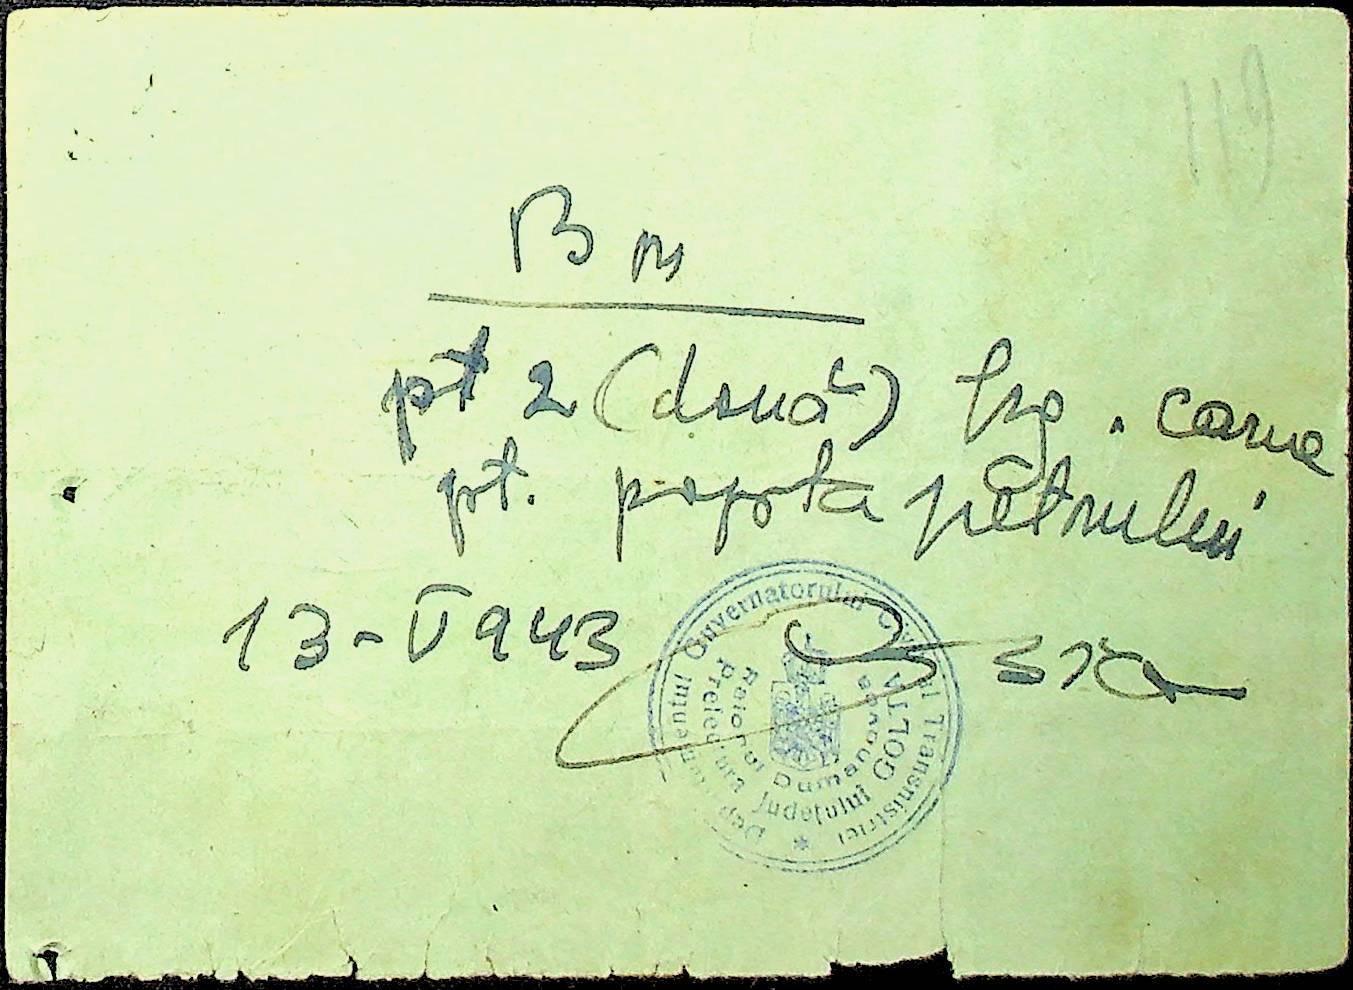 119
Bon
pt 2 (două) kg. carne
pt. popota pretrului
13-V943
Departamentul Guvernatorului Civil al Transnistriei
Prefectura Județului GOLTA
Raionul Dumanovca